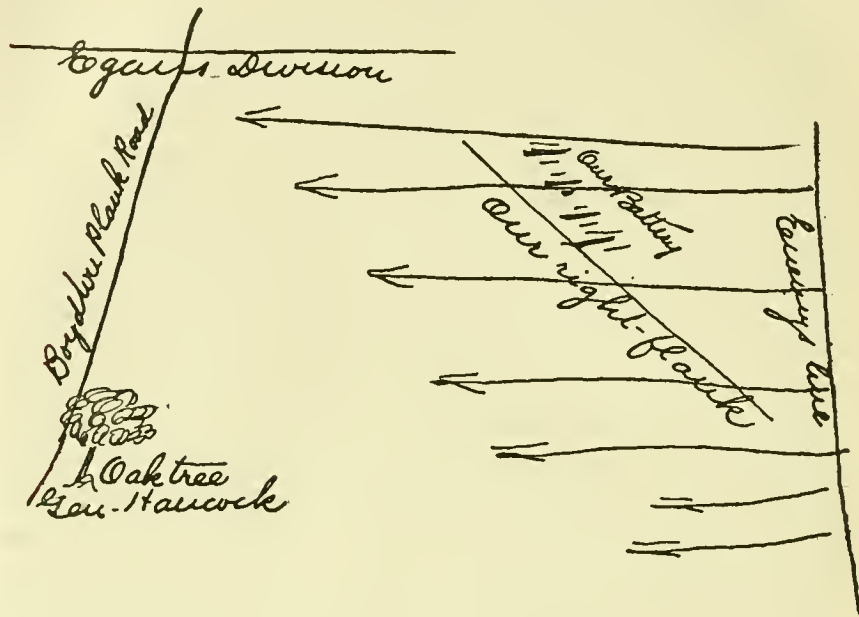 Egans Division
Boydton Plank Road
Our Battery
Our right-flank
Enemys line
Oak tree
Gen-Hancock